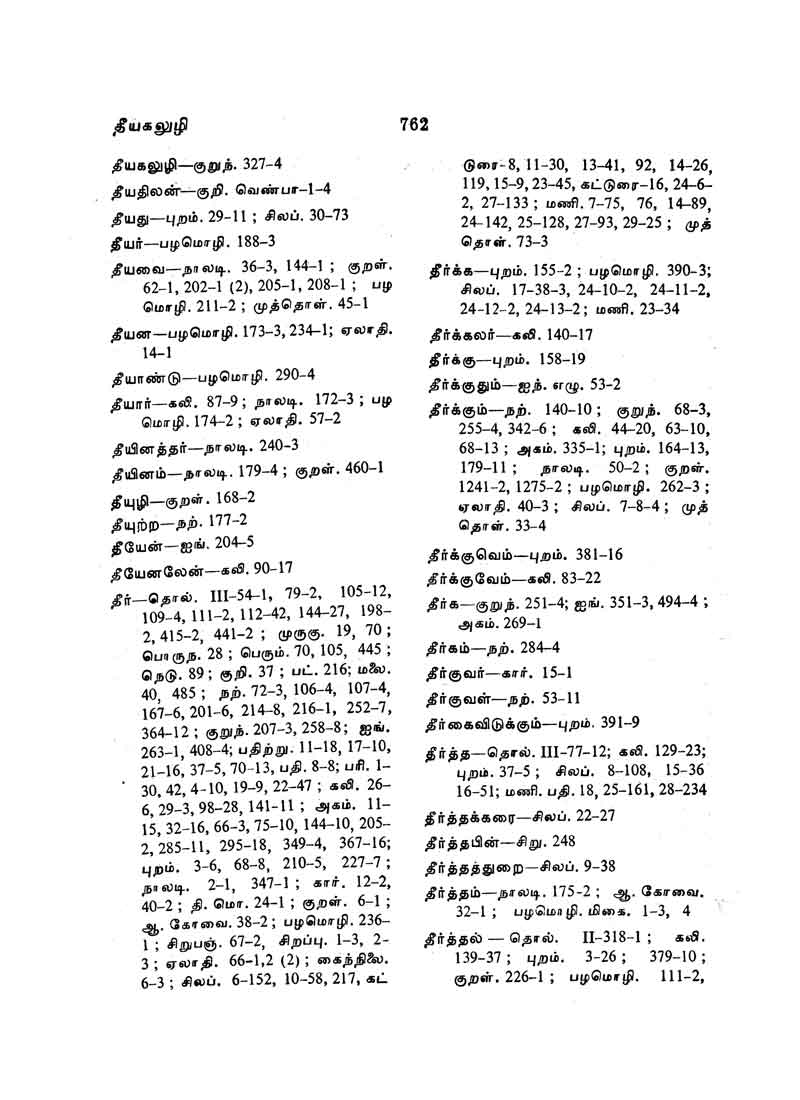 தீயகலுழி
762
தீயகலுழி—குறுந். 327–4
தீயதிலன்—குறி. வெண்பா–1–4
தீயது—புறம். 29–11 ; சிலப். 30–73
தீயர்—பழமொழி. 188–3
தீயவை—நாலடி. 36–3, 144–1 ; குறள்.
62–1, 202–1 (2), 205–1, 208–1 ; பழ
மொழி. 211–2 ; முத்தொள். 45–1
தீயன—பழமொழி. 173–3, 234–1; ஏலாதி.
14–1
தீயாண்டு—பழமொழி. 290–4
தீயார்—கலி. 87–9 ; நாலடி. 172–3 ; பழ
மொழி. 174–2 ; ஏலாதி. 57–2
தீயினத்தர்—நாலடி. 240–3
தீயினம்—நாலடி. 179–4 ; குறள். 460–1
தீயுழி—குறள். 168–2
தீயுற்ற—நற். 177–2
தீயேன்—ஐங். 204–5
தீயேனலேன்—கலி. 90–17
தீர்—தொல். III–54–1, 79–2, 105–12,
109–4, 111–2, 112–42, 144–27, 198–
2, 415–2, 441–2 ; முருகு. 19, 70 ;
பொருந. 28 ; பெரும். 70, 105, 445 ;
நெடு. 89 ; குறி. 37 ; பட். 216; மலை.
40, 485 ; நற். 72–3, 106–4, 107–4,
167–6, 201–6, 214–8, 216–1, 252–7,
364–12 ; குறுந். 207–3, 258–8 ; ஐங்.
263–1, 408–4; பதிற்று. 11–18, 17–10,
21–16, 37–5, 70–13, பதி. 8–8; பரி. 1–
30, 42, 4–10, 19–9, 22–47 ; கலி. 26–
6, 29–3, 98–28, 141–11 ; அகம். 11–
15, 32–16, 66–3, 75–10, 144–10, 205–
2, 285–11, 295–18, 349–4, 367–16;
புறம். 3–6, 68–8, 210–5, 227–7 ;
நாலடி. 2–1, 347–1 ; கார். 12–2,
40–2 ; தி. மொ. 24–1 ; குறள். 6–1 ;
ஆ. கோவை. 38–2 ; பழமொழி. 236–
1 ; சிறுபஞ். 67–2, சிறப்பு. 1–3, 2–
3 ; ஏலாதி. 66–1,2 (2) ; கைந்நிலை.
6–3 ; சிலப். 6–152, 10–58, 217, கட்
டுரை–8, 11–30, 13–41, 92, 14–26,
119, 15–9, 23–45, கட்டுரை–16, 24–6–
2, 27–133 ; மணி. 7–75, 76, 14–89,
24–142, 25–128, 27–93, 29–25 ; முத்
தொள். 73–3
தீர்க்க—புறம். 155–2 ; பழமொழி. 390–3;
சிலப். 17–38–3, 24–10–2, 24–11–2,
24–12–2, 24–13–2 ; மணி. 23–34
தீர்க்கலர்—கலி. 140–17
தீர்க்கு—புறம். 158–19
தீர்க்குதும்—ஐந். எழு. 53–2
தீர்க்கும்—நற். 140–10 ; குறுந். 68–3,
255–4, 342–6 ; கலி. 44–20, 63–10,
68–13 ; அகம். 335–1; புறம். 164–13,
179–11 ; நாலடி. 50–2 ; குறள்.
1241–2, 1275–2 ; பழமொழி. 262–3 ;
ஏலாதி. 40–3 ; சிலப். 7–8–4 ; முத்
தொள். 33–4
தீர்க்குவெம்—புறம். 381–16
தீர்க்குவேம்—கலி. 83–22
தீர்க—குறுந். 251–4; ஐங். 351–3, 494–4 ;
அகம். 269–1
தீர்கம்—நற். 284–4
தீர்குவர்—கார். 15–1
தீர்குவள்—நற். 53–11
தீர்கைவிடுக்கும்—புறம். 391–9
தீர்த்த—தொல். III–77–12; கலி. 129–23;
புறம். 37–5 ; சிலப். 8–108, 15–36
16–51; மணி. பதி. 18, 25–161, 28–234
தீர்த்தக்கரை—சிலப். 22–27
தீர்த்தபின்—சிறு. 248
தீர்த்தத்துறை—சிலப். 9–38
தீர்த்தம்—நாலடி. 175–2 ; ஆ. கோவை.
32–1 ; பழமொழி. மிகை. 1–3, 4
தீர்த்தல் — தொல். II–318–1 ; கலி.
139–37 ; புறம். 3–26 ; 379–10 ;
குறள். 226–1 ; பழமொழி. 111–2,